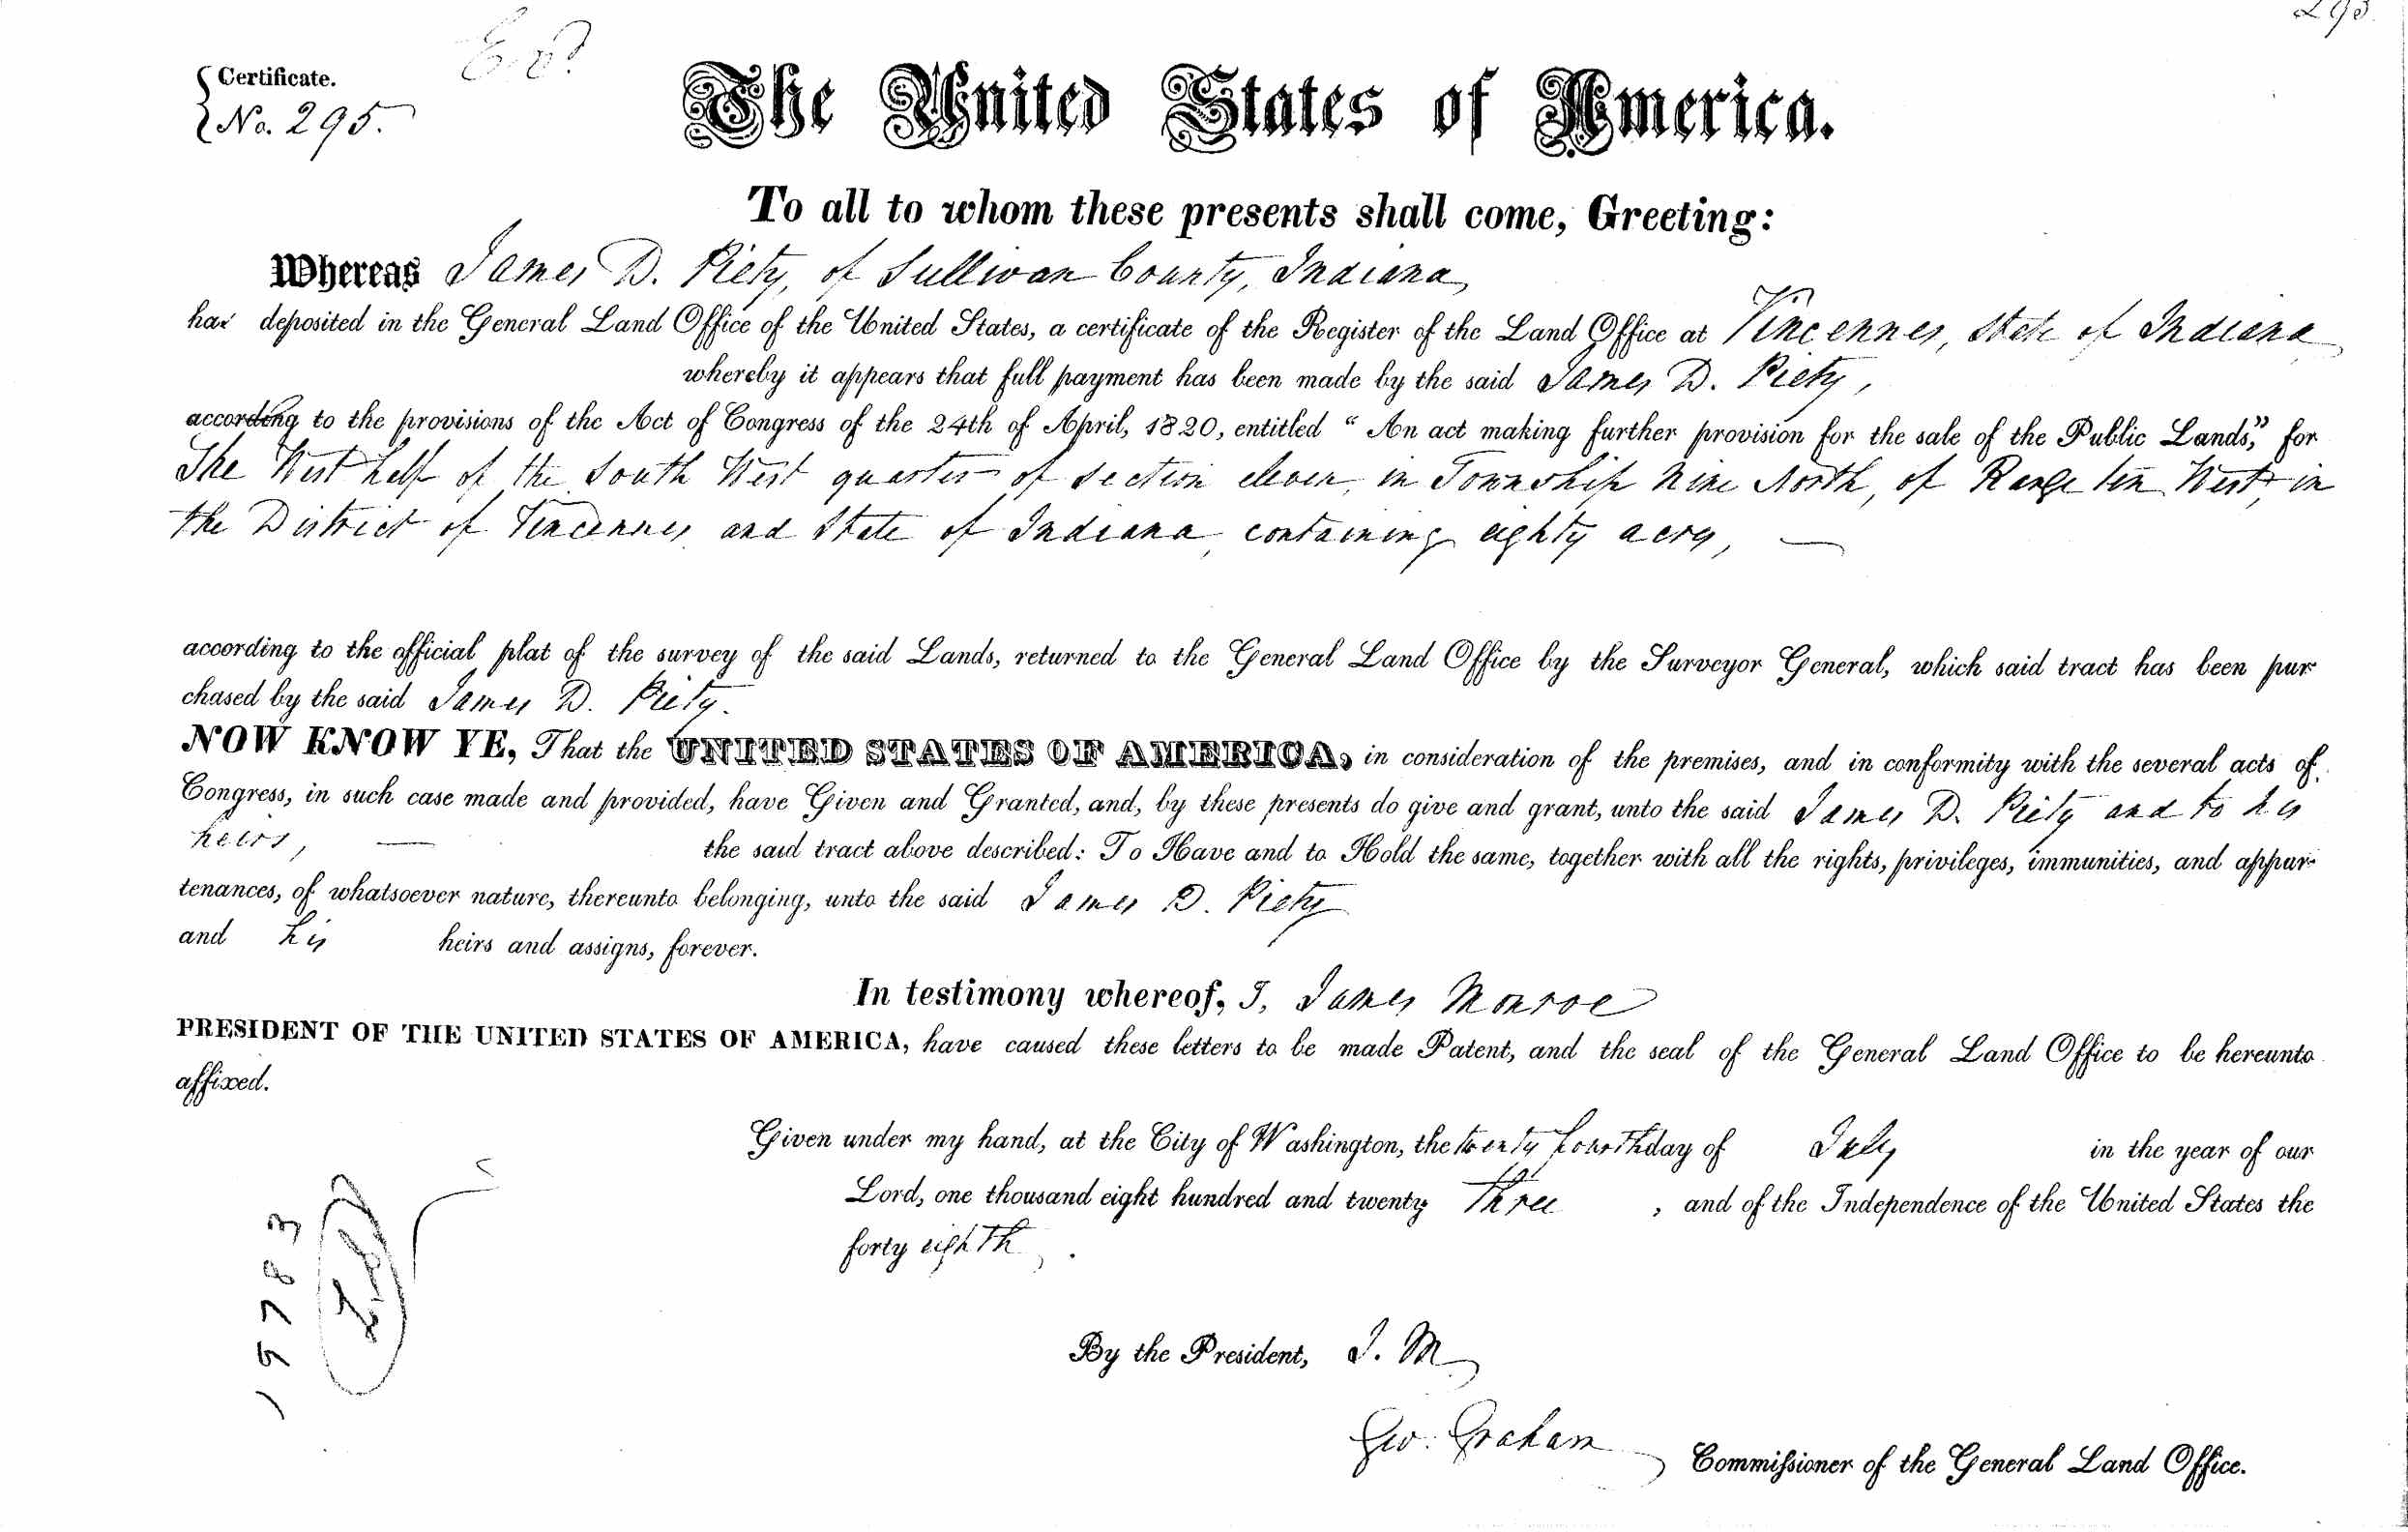 295.
Certificate.
No. 295.
The United States of America.
To all to whom these presents shall come, Greeting:
Whereas James D. Piety, of Sullivan County, Indiana,
has deposited in the General Land Office of the United States, a certificate of the Register of the Land Office at Vincennes, State of Indiana
whereby it appears that full payment has been made by the said James D. Piety,
according to the provisions of the Act of Congress of the 24th of April, 1820, entitled “ An act making further provision for the sale of the Public Lands,” for
The West half of the South West quarter of section eleven, in Township Nine North, of Range ten West, in
the District of Vincennes and State of Indiana, containing eighty acres,
according to the official plat of the survey of the said Lands, returned to the General Land Office by the Surveyor General, which said tract has been pur
chased by the said James D. Piety.
NOW KNOW YE, That the UNITED STATES OF AMERICA, in consideration of the premises, and in conformity with the several acts of
Congress, in such case made and provided, have Given and Granted, and, by these presents do give and grant, unto the said James D. Piety and to his
heirs, the said tract above described: To Have and to Hold the same, together with all the rights, privileges, immunities, and appur-
tenances, of whatsoever nature, thereunto belonging, unto the said James D. Piety
and his heirs and assigns, forever.
In testimony whereof, I, James Monroe
PRESIDENT OF THE UNITED STATES OF AMERICA, have caused these letters to be made Patent, and the seal of the General Land Office to be hereunto
affixed.
Given under my hand, at the City of Washington, the twenty fourth day of July in the year of our
Lord, one thousand eight hundred and twenty three, and of the Independence of the United States the
forty eighth.
By the President, J. M.
Geo. Graham Commissioner of the General Land Office.
19783
L.S.